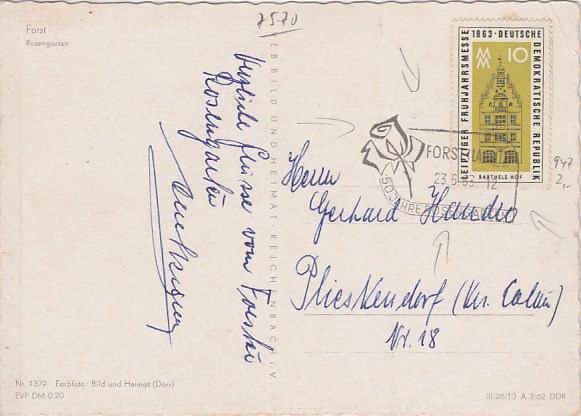 7570
Forst
Rosengarten
Herzliche Grüsse vom Forster
Rosengarten
BILD UND HEIMAT REICHENBACH I. V.
LEIPZIGER FRÜHJAHRSMESSE 1963 · DEUTSCHE DEMOKRATISCHE REPUBLIK
MM 10
BARTHELS HOF
FORST
23.6.63. 12
50 JAHRE
947
2,-
Herrn
Gerhard
Plieskendorf (Kr. Calau)
Nr. 18
Nr. 1379 Farbfoto: Bild und Heimat (Darr)
EVP DM 0.20
III/26/13 A 3/62 DDR